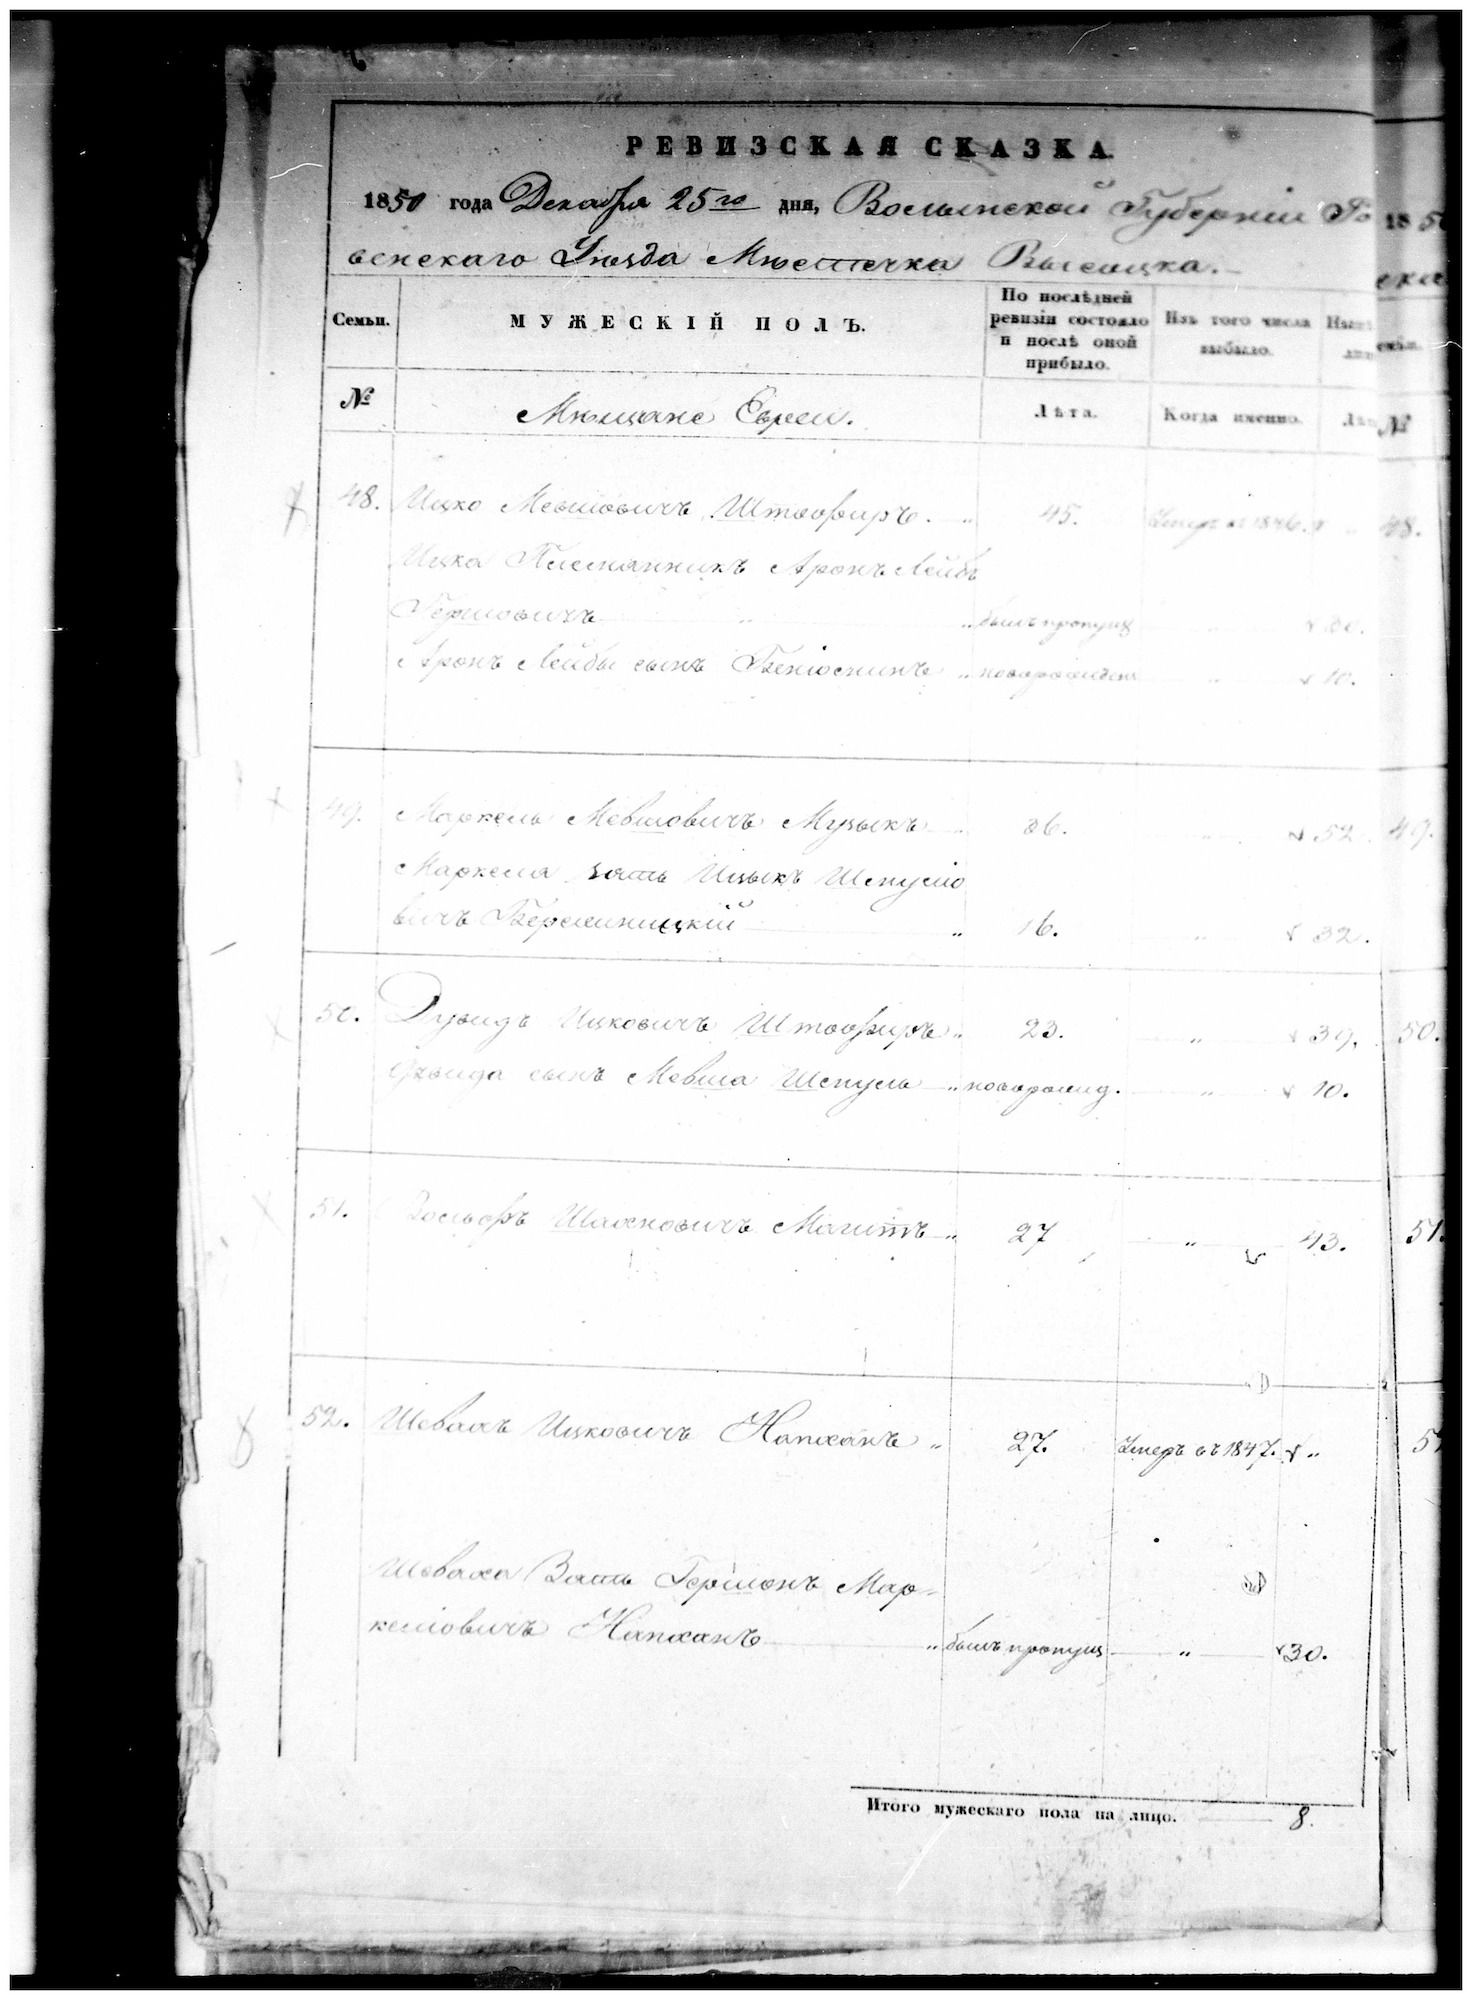 РЕВИЗСКАЯ СКАЗКА.
1850 года Декабря 25го дня, Волынской Губерніи Ро
венскаго Уѣзда Мѣстечка Высоцка.
Семьи. МУЖЕСКІЙ ПОЛЪ. По послѣдней ревизіи состояло и послѣ оной прибыло. Изъ того числа выбыло.
№ Мѣщане Евреи. Лѣта. Когда именно.
48. Ицко Мевшовичъ Штофиръ. „ 45. Умеръ въ 1846. „ 48.
Ицка Племянникъ Аронъ Лейбъ
Гершовичъ „ „ былъ пропущ „
Аронъ Лейбы сынъ Беніоминъ „ новорожден „ 10.
49. Маркель Мевшовичъ Музыкъ „ 36. „ 52. 49.
Маркеля зять Ицыкъ Шпуліо
вичъ Бережницкій „ 16. „ 32.
50. Дувидъ Ицковичъ Штофиръ „ 23. „ 39. 50.
Дувида сынъ Мевша Шепуль „ новорожд. „ 10.
51. Вольфъ Шаеновичъ „ 27 „ 43. 51.
52. Шевахъ Ицковичъ Напханъ „ 27. Умеръ въ 1847. „
Шеваха Зять Гершонъ Мар-
келіовичъ Напханъ „ былъ пропущ „ 30.
Итого мужескаго пола на лицо. 8.